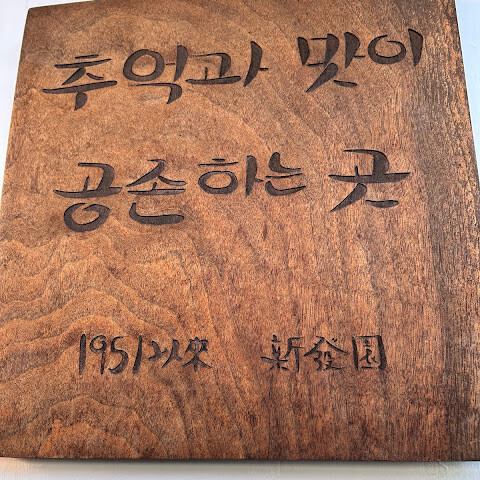 추억과 맛이
공손하는 곳
1951以來 新發園